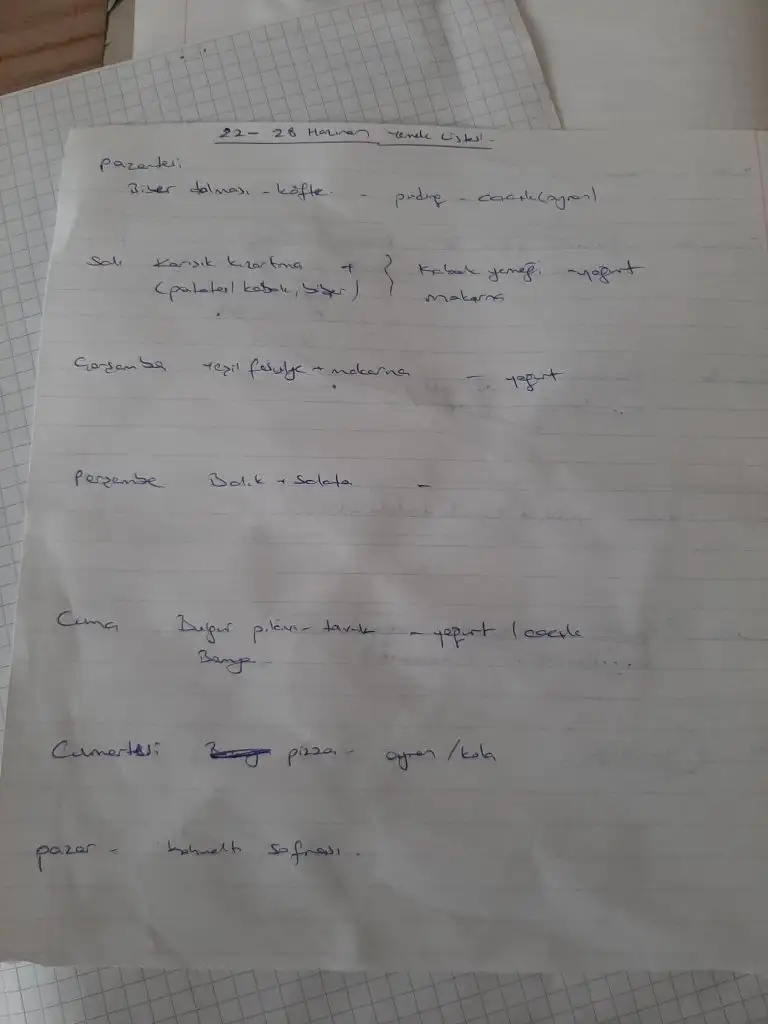 22- 28 Haziran Yemek Listesi
pazartesi
Biber dolması - köfte. - puding - cacık(ayran)
Salı Karışık kızartma + } Kabak yemeği - yoğurt
(patates/ kabak, biber) makarna
Çarşamba Yeşil fasulye + makarna - yoğurt
Perşembe Balık + Salata -
Cuma Bulgur pilavı - tavuk - yoğurt / cacık
Bamya -
Cumartesi pizza - ayran / kola
pazar - kahvaltı sofrası.